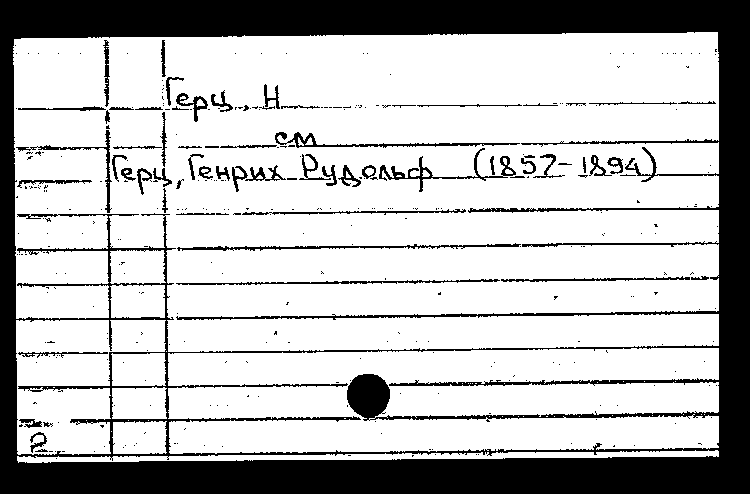 Герц, Н
см
Герц, Генрих Рудольф (1857-1894)